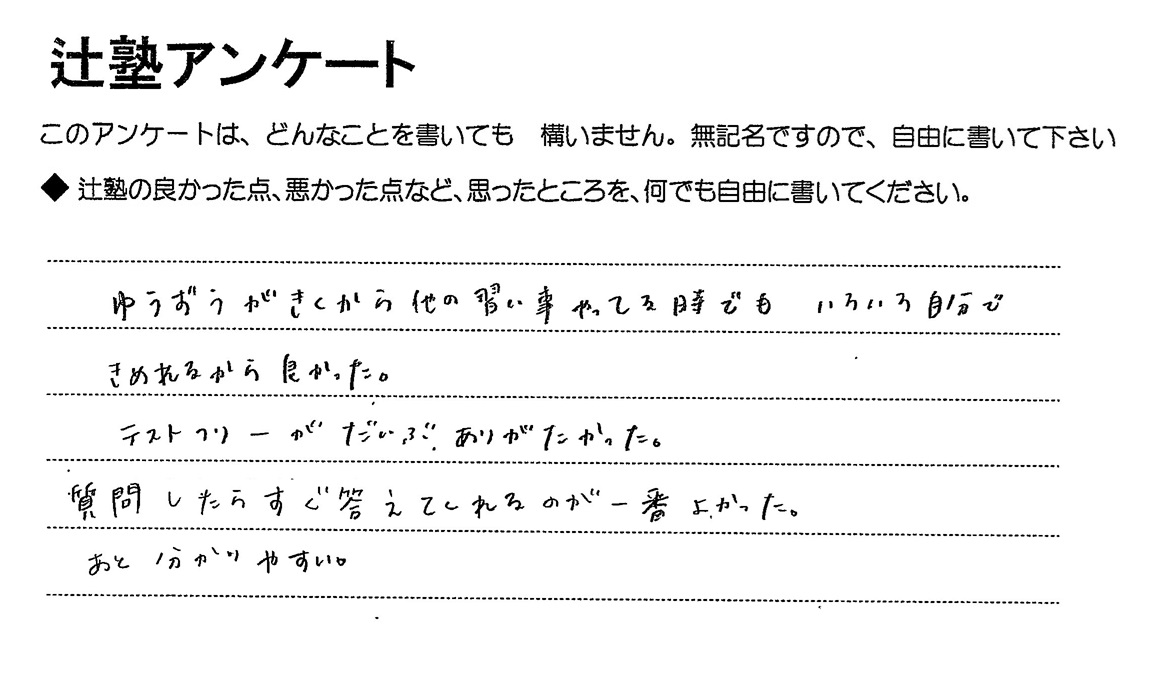 辻塾アンケート
このアンケートは、どんなことを書いても　構いません。無記名ですので、自由に書いて下さい
◆ 辻塾の良かった点、悪かった点など、思ったところを、何でも自由に書いてください。
ゆうずうがきくから他の習い事やってる時でも　いろいろ自分で
きめれるから良かった。
テストフリーがだいぶ ありがたかった。
質問したらすぐ答えてくれるのが一番よかった。
あと 分かりやすい。